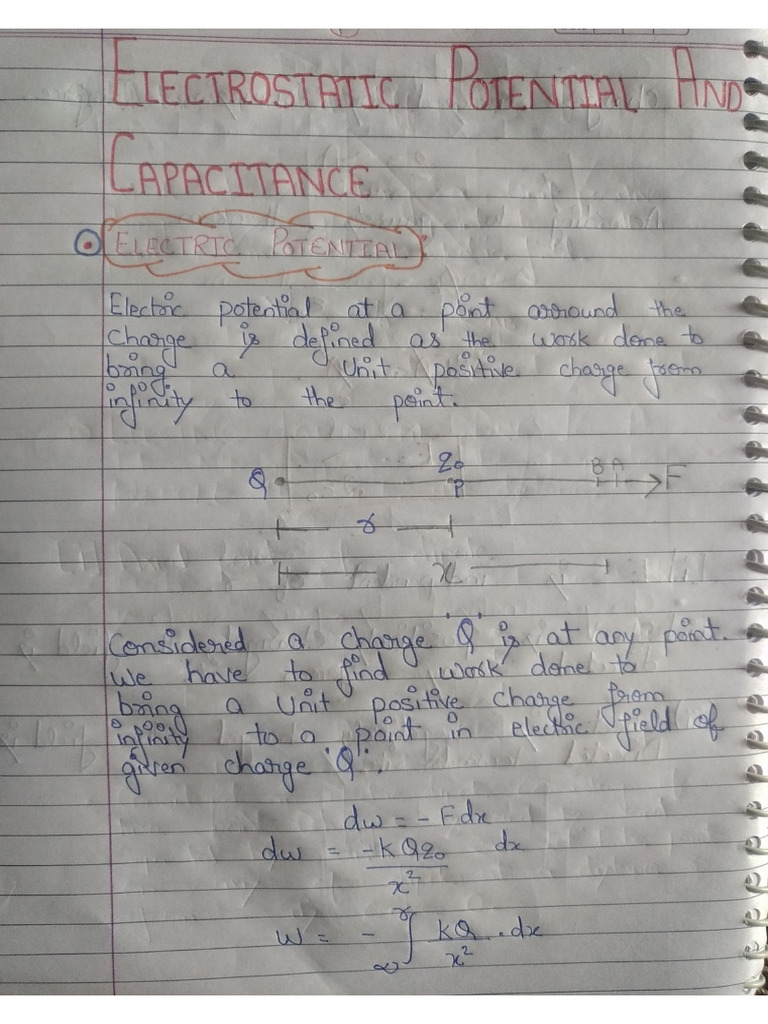 ELECTROSTATIC POTENTIAL AND
CAPACITANCE
ELECTRIC POTENTIAL
Electric potential at a point arround the
charge is defined as the work done to
bring a unit positive charge from
infinity to the point.
q₀
B A
Q P F
r
x
Considered a charge 'Q' is at any point.
We have to find work done to
bring a unit positive charge from
infinity to a point in electric field of
given charge 'Q'.
dw = - Fdx
dw = -KQq₀/x² dx
W = - ∫_∞^r KQ/x² . dx